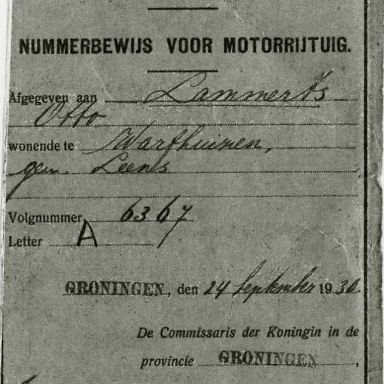 NUMMERBEWIJS VOOR MOTORRIJTUIG.
Afgegeven aan Lammerts
Otto
wonende te Warfhuizen,
gem. Leens
Volgnummer 6367
Letter A
GRONINGEN, den 24 September 1930.
De Commissaris der Koningin in de
provincie GRONINGEN,